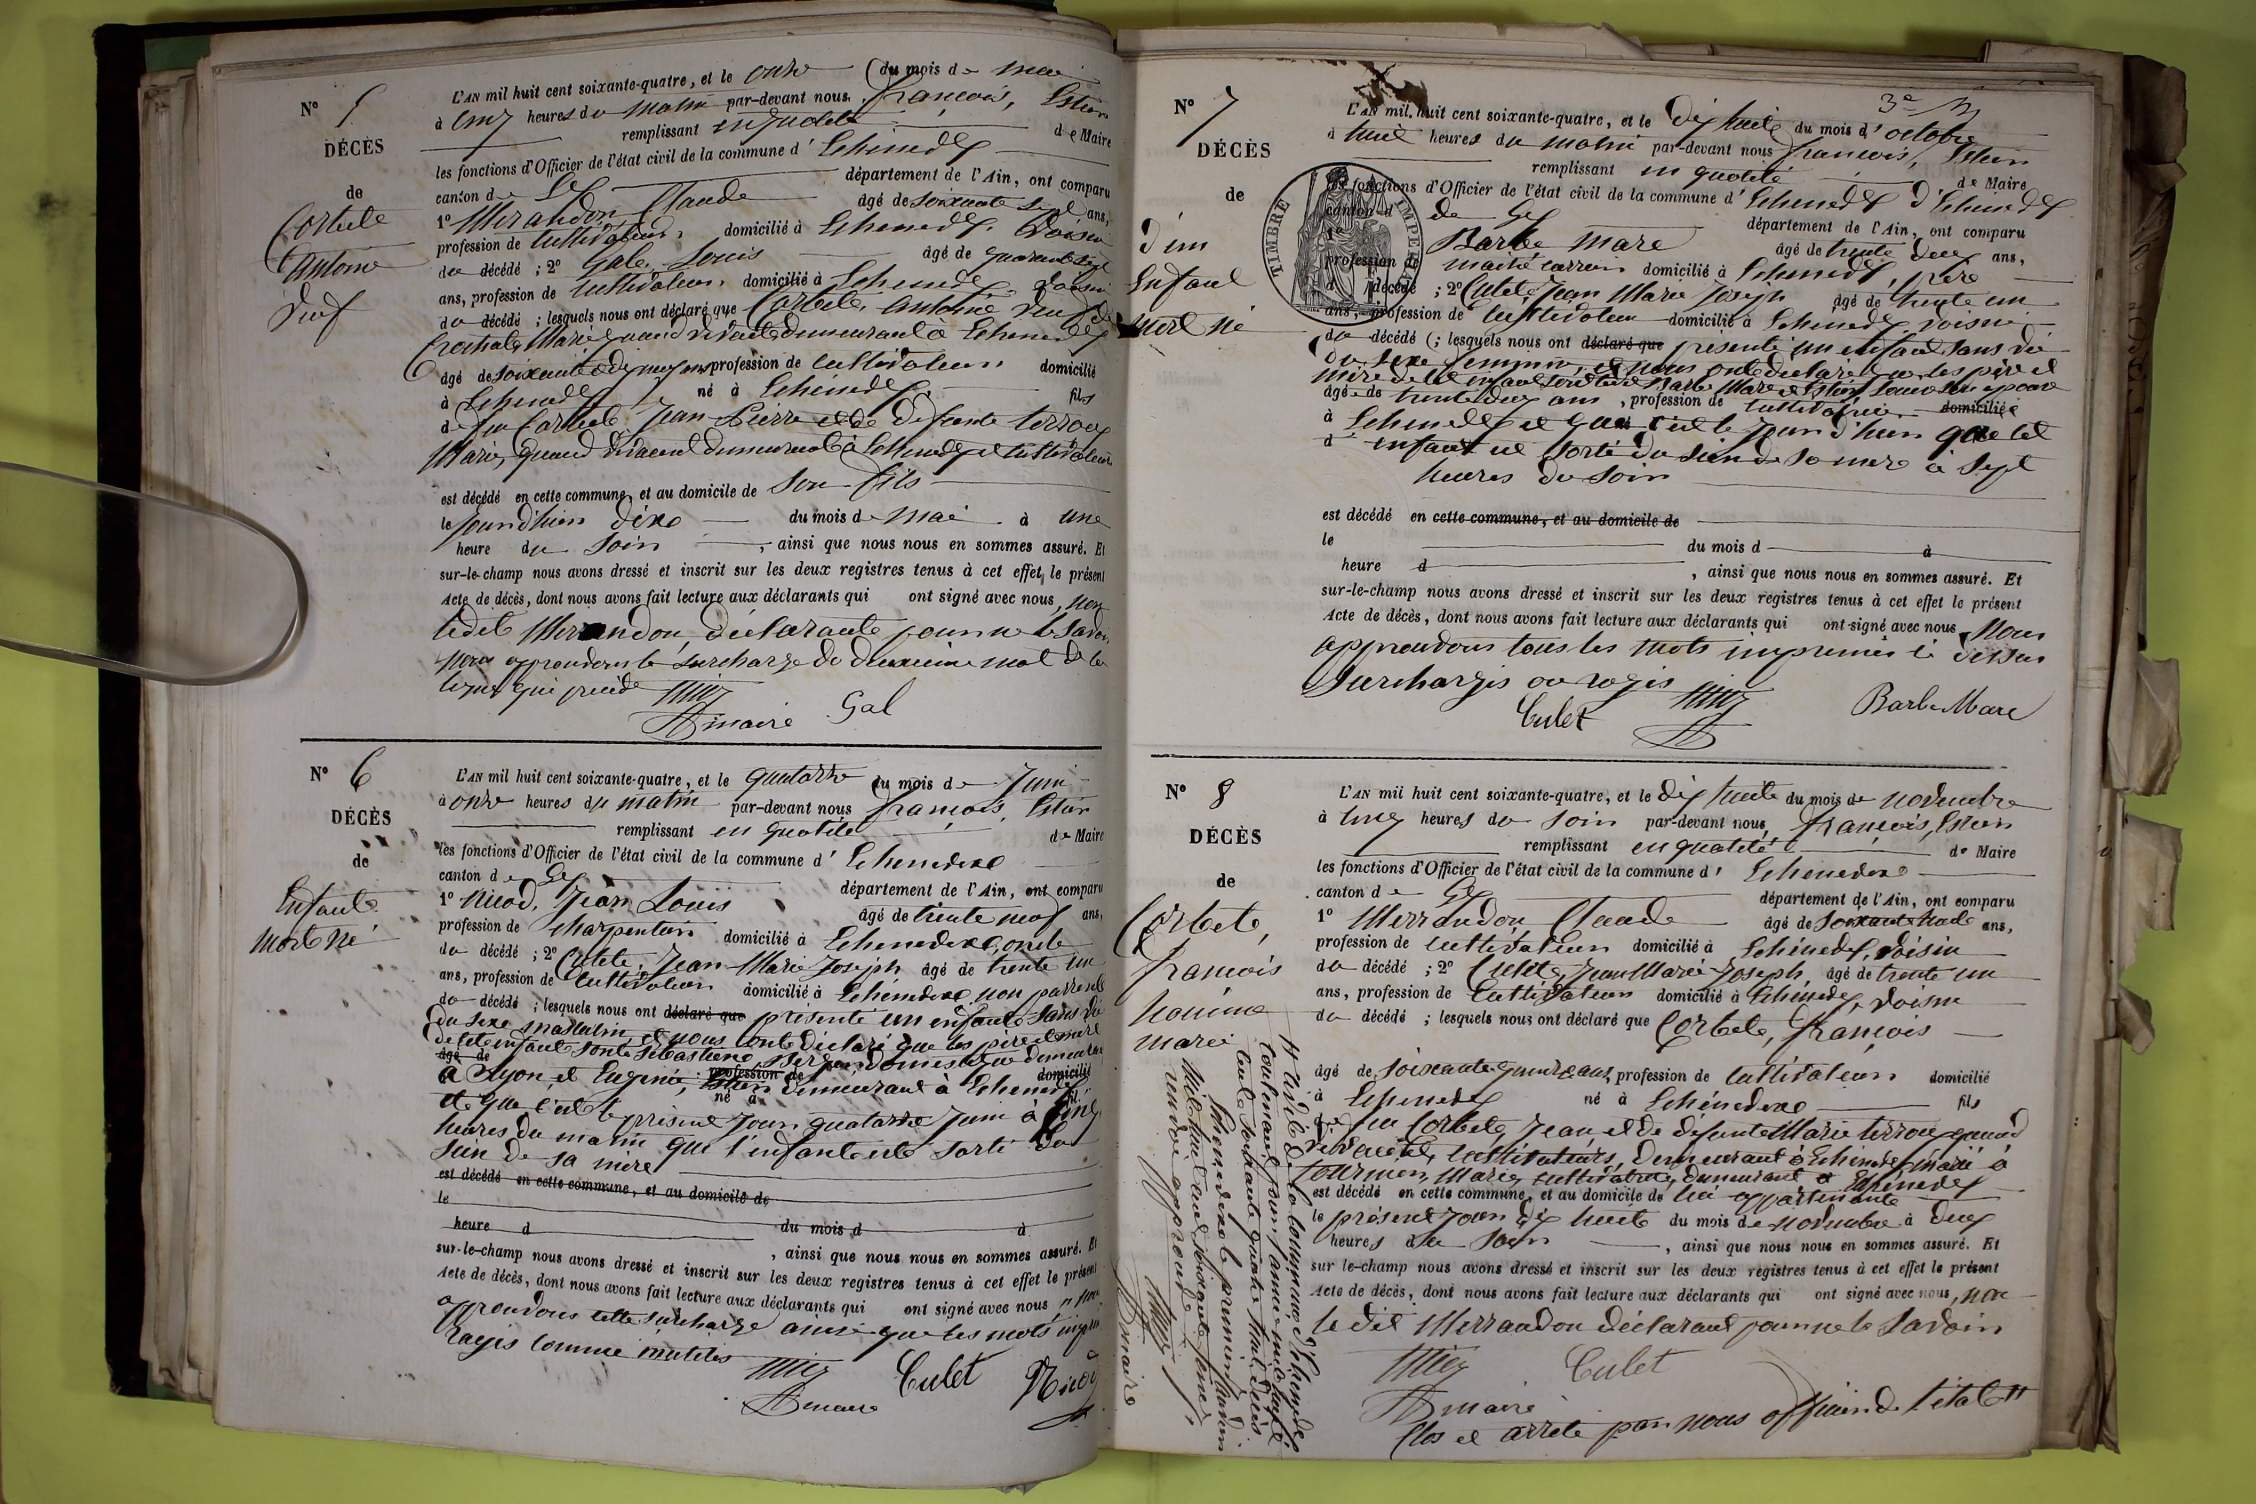 N° 5
DÉCÈS
de
Corbet
Antoine
Veuf
L'AN mil huit cent soixante-quatre, et le onze du mois de mai
à cinq heures du matin par-devant nous François, Estier
remplissant en qualité de Maire
les fonctions d'Officier de l'état civil de la commune d' Echenevex
canton de Gex département de l'Ain, ont comparu
1° Merandon Claude âgé de soixante ans,
profession de cultivateur domicilié à Echenevex, voisin
du décédé ; 2° Gal, Louis âgé de quarante
ans, profession de cultivateur domicilié à Echenevex, voisin
du décédé ; lesquels nous ont déclaré que Corbet, Antoine veuf de
Marie quand vivait demeurant à Echenevex
âgé de soixante dix neuf ans profession de cultivateur domicilié
à Echenevex né à Echenevex fils
de feu Corbet Jean Pierre et de défunte Terroux
Marie, quand vivaient demeurant à Echenevex et cultivateurs
est décédé en cette commune, et au domicile de son fils
le jour d'hier dixe du mois de mai à une
heure du soir, ainsi que nous nous en sommes assuré. Et
sur-le-champ nous avons dressé et inscrit sur les deux registres tenus à cet effet, le présent
Acte de décès, dont nous avons fait lecture aux déclarants qui ont signé avec nous, non
ledit Merandon, déclarant pour ne le savoir
nous approuvons la surcharge du deuxième mot de la
ligne qui précède
maire Gal
N° 6
DÉCÈS
de
Enfant
Mort né
L'AN mil huit cent soixante-quatre, et le quatorze du mois de Juin
à onze heures du matin par-devant nous François, Estier
remplissant en qualité de Maire
les fonctions d'Officier de l'état civil de la commune d' Echenevex
canton de Gex département de l'Ain, ont comparu
1° Nicod, Jean Louis âgé de trente neuf ans,
profession de charpentier domicilié à Echenevex, oncle
du décédé ; 2° Culet, Jean Marie Joseph âgé de trente un
ans, profession de cultivateur domicilié à Echenevex non parent
du décédé ; lesquels nous ont déclaré que présenté un enfant sans vie
du sexe masculin, et nous ont déclaré que les père et mère
de cet enfant sont Sébastien domestique demeurant
âgé de profession de domicilié
à Lyon, et Eugénie, Estier demeurant à Echenevex
né à fil
et que c'est le présent jour quatorze juin à cinq
heures du matin que l'enfant est sorti du
sein de sa mère
est décédé en cette commune, et au domicile de
le du mois d à
heure d, ainsi que nous nous en sommes assuré. Et
sur-le-champ nous avons dressé et inscrit sur les deux registres tenus à cet effet le présent
Acte de décès, dont nous avons fait lecture aux déclarants qui ont signé avec nous
approuvons cette surcharge ainsi que les mots
rayés comme inutiles
maire Culet Nicod
3e
N° 7
DÉCÈS
de
d'un
Enfant
mort né
TIMBRE IMPERIAL
L'AN mil huit cent soixante-quatre, et le dix huit du mois d'octobre
à huit heures du matin par-devant nous François, Estier
remplissant en qualité de Maire
les fonctions d'Officier de l'état civil de la commune d' Echenevex d'Echenevex
canton d de Gex département de l'Ain, ont comparu
1° Barbe Marc âgé de trente deux ans,
profession de domicilié à Echenevex, père
d décédé ; 2° Culet, Jean Marie Joseph âgé de trente un
ans, profession de cultivateur domicilié à Echenevex voisin
du décédé ; lesquels nous ont déclaré que présenté un enfant sans vie
du sexe féminin, et nous ont déclaré que les père et
mère de cet enfant sont Barbe Marc et Estier, Louise son épouse
âgé de trente deux ans, profession de cultivatrice domiciliée
à Echenevex et que c'est le jour d'hier que cet
enfant est sorti du sein de sa mère à sept
heures du soir
est décédé en cette commune, et au domicile de
le du mois d à
heure d, ainsi que nous nous en sommes assuré. Et
sur-le-champ nous avons dressé et inscrit sur les deux registres tenus à cet effet le présent
Acte de décès, dont nous avons fait lecture aux déclarants qui ont signé avec nous, Nous
approuvons tous les mots imprimés ci dessus
surchargés ou rayés
Culet Barbe Marc
N° 8
DÉCÈS
de
Corbet,
François
homme
marié
L'AN mil huit cent soixante-quatre, et le dix huit du mois de novembre
à cinq heures du soir par-devant nous, François, Estier
remplissant en qualité de Maire
les fonctions d'Officier de l'état civil de la commune d' Echenevex
canton de Gex département de l'Ain, ont comparu
1° Merrandon, Claude âgé de soixante ans,
profession de cultivateur domicilié à Echénevex, voisin
du décédé ; 2° Culet, Jean Marie Joseph, âgé de trente un
ans, profession de cultivateur domicilié à Echénevex, voisin
du décédé ; lesquels nous ont déclaré que Corbet, François
âgé de soixante quinze ans, profession de cultivateur domicilié
à Echenevex né à Echénevex fils
de feu Corbet, Jean et de défunte Marie Terroux quand
vivaient, cultivateurs, demeurant à Echenevex, marié à
Fournier, Marie, cultivatrice, demeurant à Echenevex
est décédé en cette commune, et au domicile de lui appartenant
le présent jour dix huit du mois de novembre à deux
heures du soir, ainsi que nous nous en sommes assuré. Et
sur le-champ nous avons dressé et inscrit sur les deux registres tenus à cet effet le présent
Acte de décès, dont nous avons fait lecture aux déclarants qui ont signé avec nous, non
le dit Merrandon déclarant pour ne le savoir
Culet
maire
Clos et arrêté par nous officier de l'état
civil de la commune d'Echenevex
contenant pour l'année mil huit
cent soixante quatre huit décès
Echenevex le premier janvier
mil huit cent soixante cinq
approuvé
maire